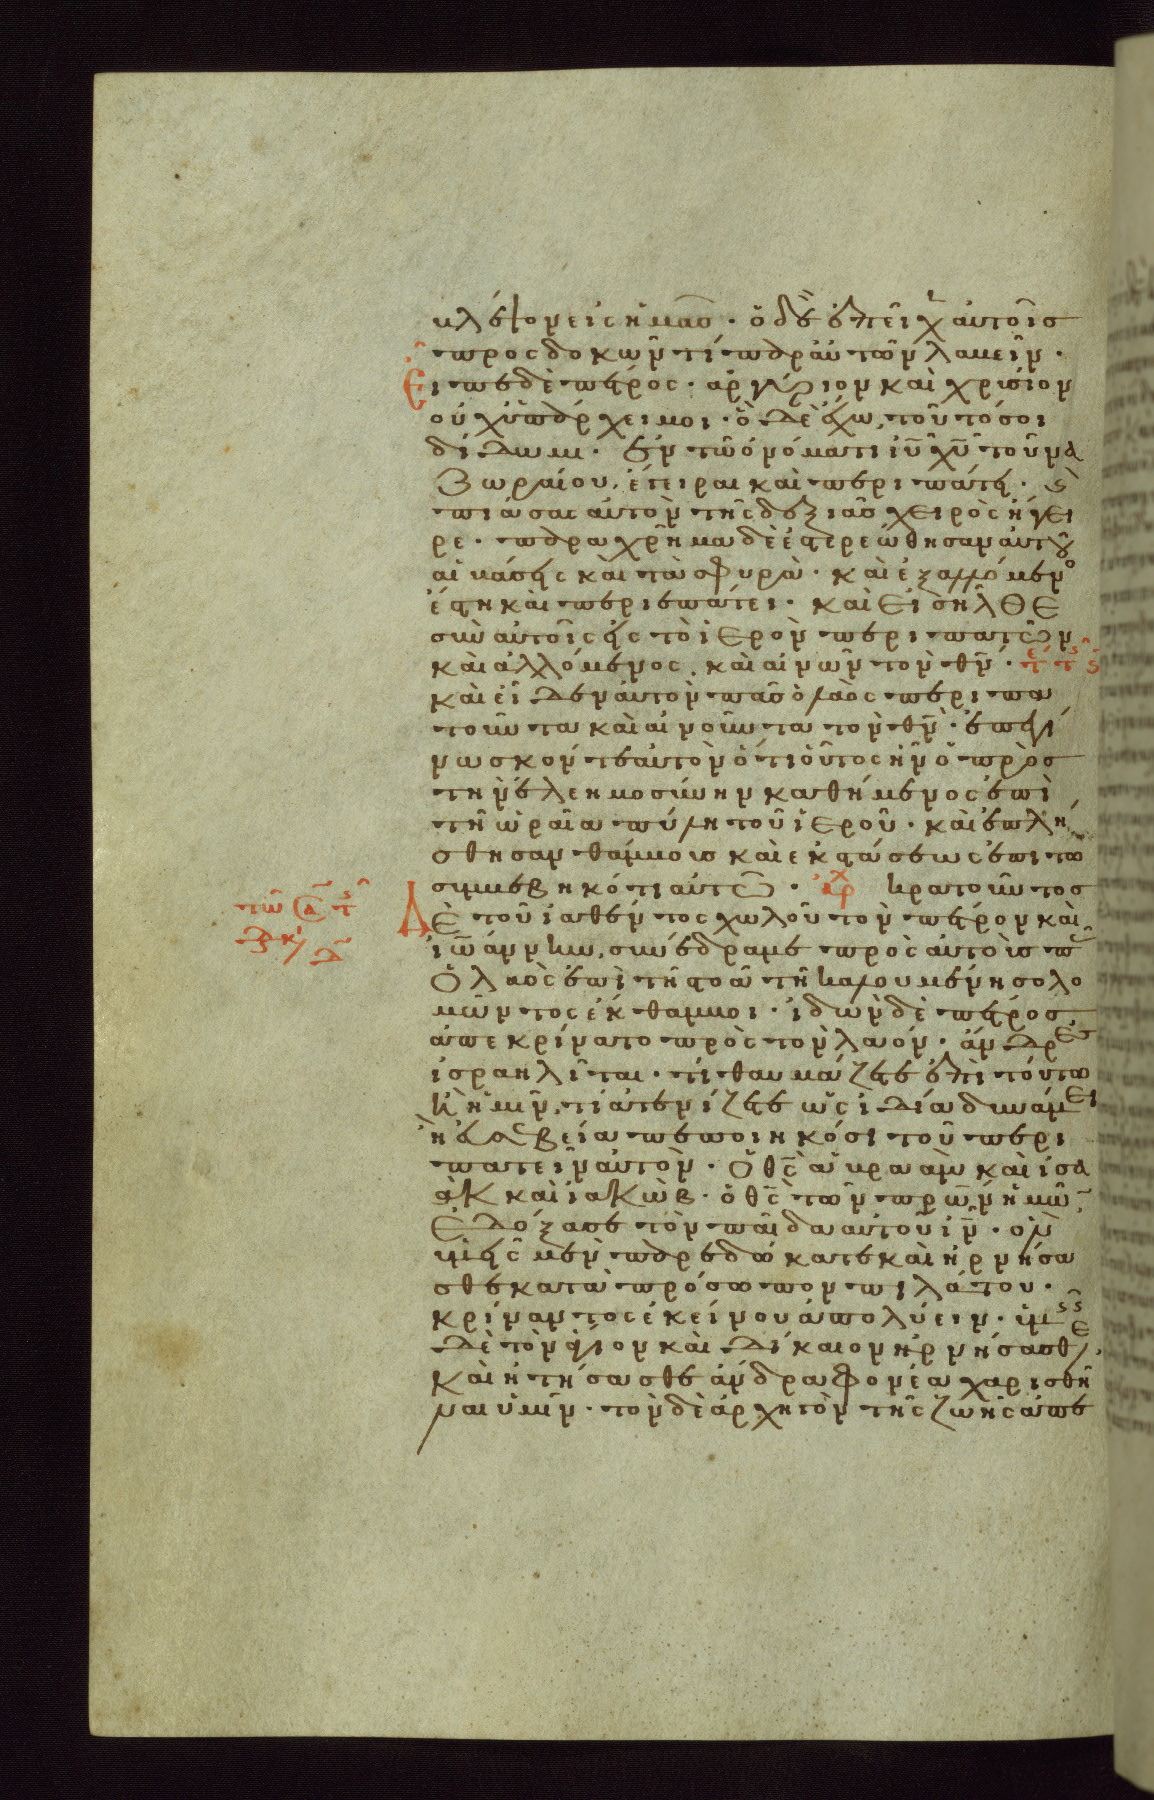 βλέψον εἰς ἡμᾶς · ὁ δὲ ἐπεῖχεν αὐτοῖς
προσδοκῶν τί παρ αὐτῶν λαβεῖν ·
Εἶπε δὲ πέτρος · ἀργύριον καὶ χρυσίον
οὐχ ὑπάρχει μοι · ὃ δὲ ἔχω, τοῦτό σοι
δίδωμι · ἐν τῶ ὀνόματι ιυ χυ τοῦ να
ζωραίου, ἔγειραι καὶ περιπάτει · καὶ
πιάσας αὐτὸν τῆς δεξιᾶς χειρὸς ἤγει
ρε · παραχρῆμα δὲ ἐστερεώθησαν αὐτοῦ
αἱ βάσεις καὶ τὰ σφυρὰ · καὶ ἐξαλλόμενο
ἔστη καὶ περιεπάτει · καὶ εἰσῆλθε
σὺν αὐτοῖς εἰς τὸ ἱερὸν περιπατῶν
καὶ ἁλλόμενος, καὶ αἰνῶν τὸν θν ·
καὶ εἶδεν αὐτὸν πᾶς ὁ λαὸς περιπα
τοῦντα καὶ αἰνοῦντα τὸν θν · ἐπεγί
νωσκόν τε αὐτὸν ὅτι οὗτος ἦν ὁ πρὸς
τὴν ἐλεημοσύνην καθήμενος ἐπὶ
τῆ ὡραία πύλη τοῦ ἱεροῦ · καὶ ἐπλή
σθησαν θάμβους καὶ ἐκστάσεως ἐπὶ τῶ
συμβεβηκότι αὐτῶ · ἀρχ κρατοῦντος
Δὲ τοῦ ἰαθέντος χωλοῦ τὸν πέτρον καὶ
ἰωάννην, συνέδραμε πρὸς αὐτοὺς π
ὁ λαὸς ἐπὶ τῆ στοᾶ τῆ καλουμένη σολο
μῶντος ἔκθαμβοι · ἰδὼν δὲ πέτρος
ἀπεκρίνατο πρὸς τὸν λαόν · ἄνδρες
ἰσραηλῖται · τί θαυμάζετε ἐπὶ τούτω
ἢ ἡμῖν τί ἀτενίζετε ὡς ἰδία δυνάμει
ἢ εὐσεβεία πεποιηκόσι τοῦ περι
πατεῖν αὐτόν · ὁ θς ἀβραὰμ καὶ ἰσα
ὰκ καὶ ἰακὼβ · ὁ θς τῶν πρων ἡμῶν
ἐδόξασε τὸν παῖδα αὐτοῦ ιν · ὃν
ὑμεῖς μὲν παρεδώκατε καὶ ἠρνήσα
σθε κατὰ πρόσωπον πιλάτου ·
κρίναντος ἐκείνου ἀπολύειν · ὑμεῖς
δὲ τὸν ἅγιον καὶ δίκαιον ἠρνήσασθε,
καὶ ἠτήσασθε ἄνδρα φονέα χαρισθῆ
ναι ὑμῖν · τὸν δὲ ἀρχηγὸν τῆς ζωῆς ἀπε